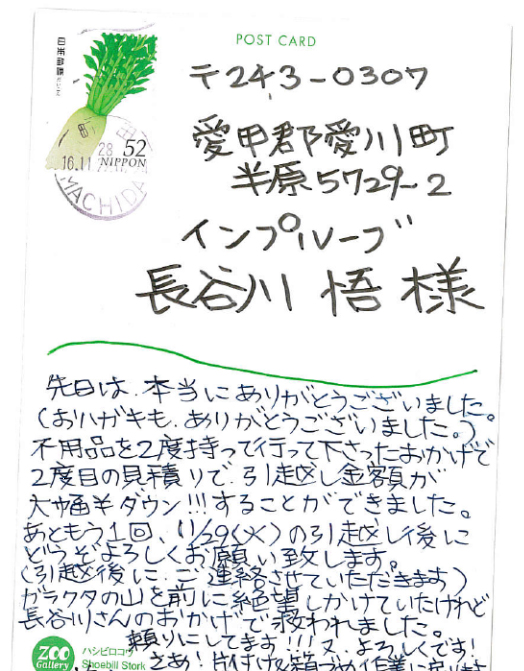 POST CARD
日本郵便
52
NIPPON
28
16.11
MACHIDA
〒243-0307
愛甲郡愛川町
半原5729-2
インプルーブ
長谷川 悟 様
先日は、本当にありがとうございました。
(おハガキも、ありがとうございました。)
不用品を2度持って行って下さったおかげで
2度目の見積りで、引越し金額が
大幅半ダウン!!!することができました。
あともう1回、11/29(火)の引越し後に
どうぞよろしくお願い致します。
(引越後に、ご連絡させていただきます)
ガラクタの山を前に絶望しかけていたけれど
長谷川さんのおかげで救われました。
頼りにしてます!!!又、よろしくです!
さあ!片付け&箱づめ作業に
ZOO
Gallery
ハシビロコウ
Shoebill Stork